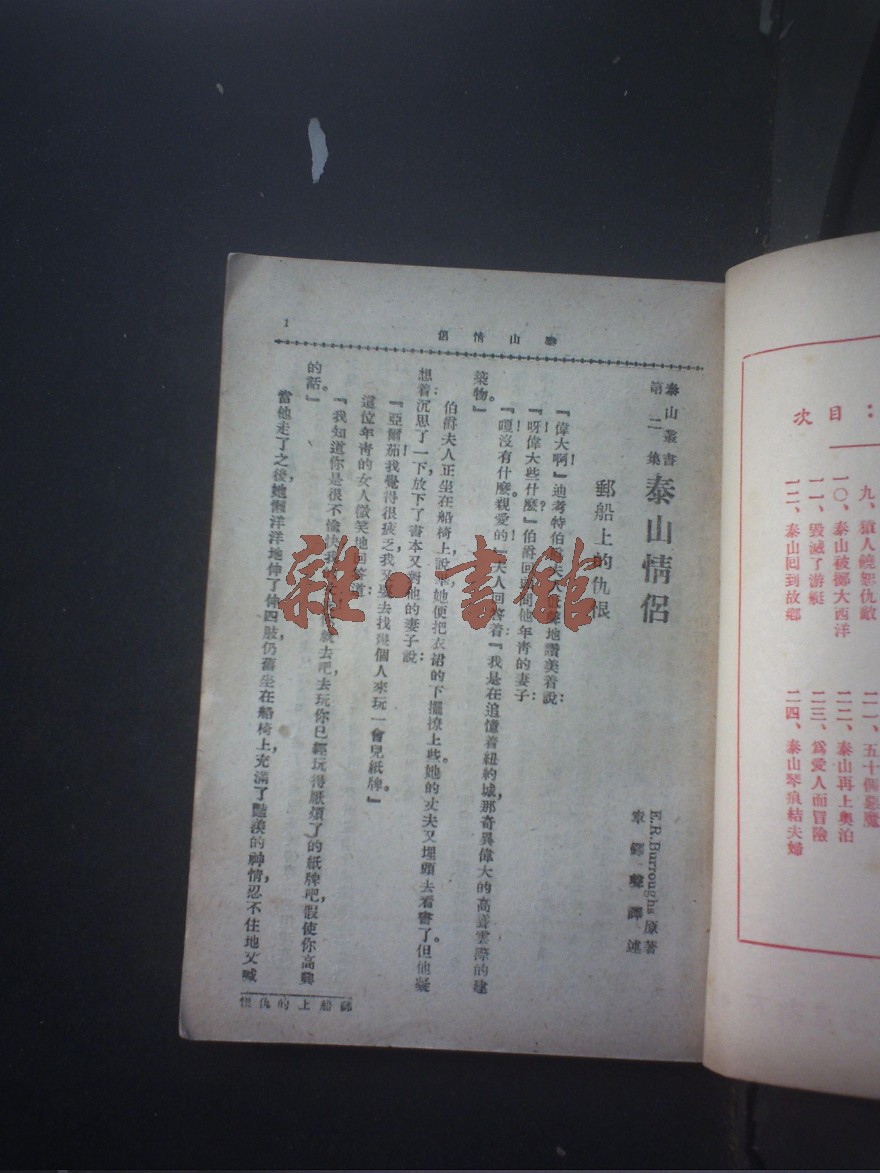 泰山情侶
1
泰山叢書
第二集
泰山情侶
E.R.Burroughs 原著
章鐸聲譯述
郵船上的仇恨
『偉大啊!』迪考特伯爵夫人
地讚美着說:
『呀!偉大些什麼?』伯爵回
問他年靑的妻子:
『嘎!沒有什麼。親愛的!』夫人回答着『我是在追憶着紐約城,那奇異偉大的高聳雲際的建
築物。』
伯爵夫人正坐在船椅上,說
她便把衣裙的下擺撩上些。她的丈夫又埋頭去看書了。但他凝
想着,沉思了一下,放下了書本又對他的妻子說:
『亞爾茄!我覺得很疲乏,我
要去找幾個人來玩一會兒紙牌。』
這位年靑的女人微笑地回答道:
『我知道你是很不愉快,我
就去吧,去玩你已經玩得厭煩了的紙牌吧,假使你高興
的話。』
當他走了之後,她懶洋洋地伸了伸四肢,仍舊坐在船椅上,充滿了豔羨的神情,忍不住地又喊
郵船上的仇恨
雜·書館
目次:
九、猿人饒恕仇敵
一〇、泰山被擲大西洋
一一、毀滅了游艇
一二、泰山回到故鄉
二一、五十個惡魔
二二、泰山再上奧泊
二三、爲愛人而冒險
二四、泰山琴痕結夫婦